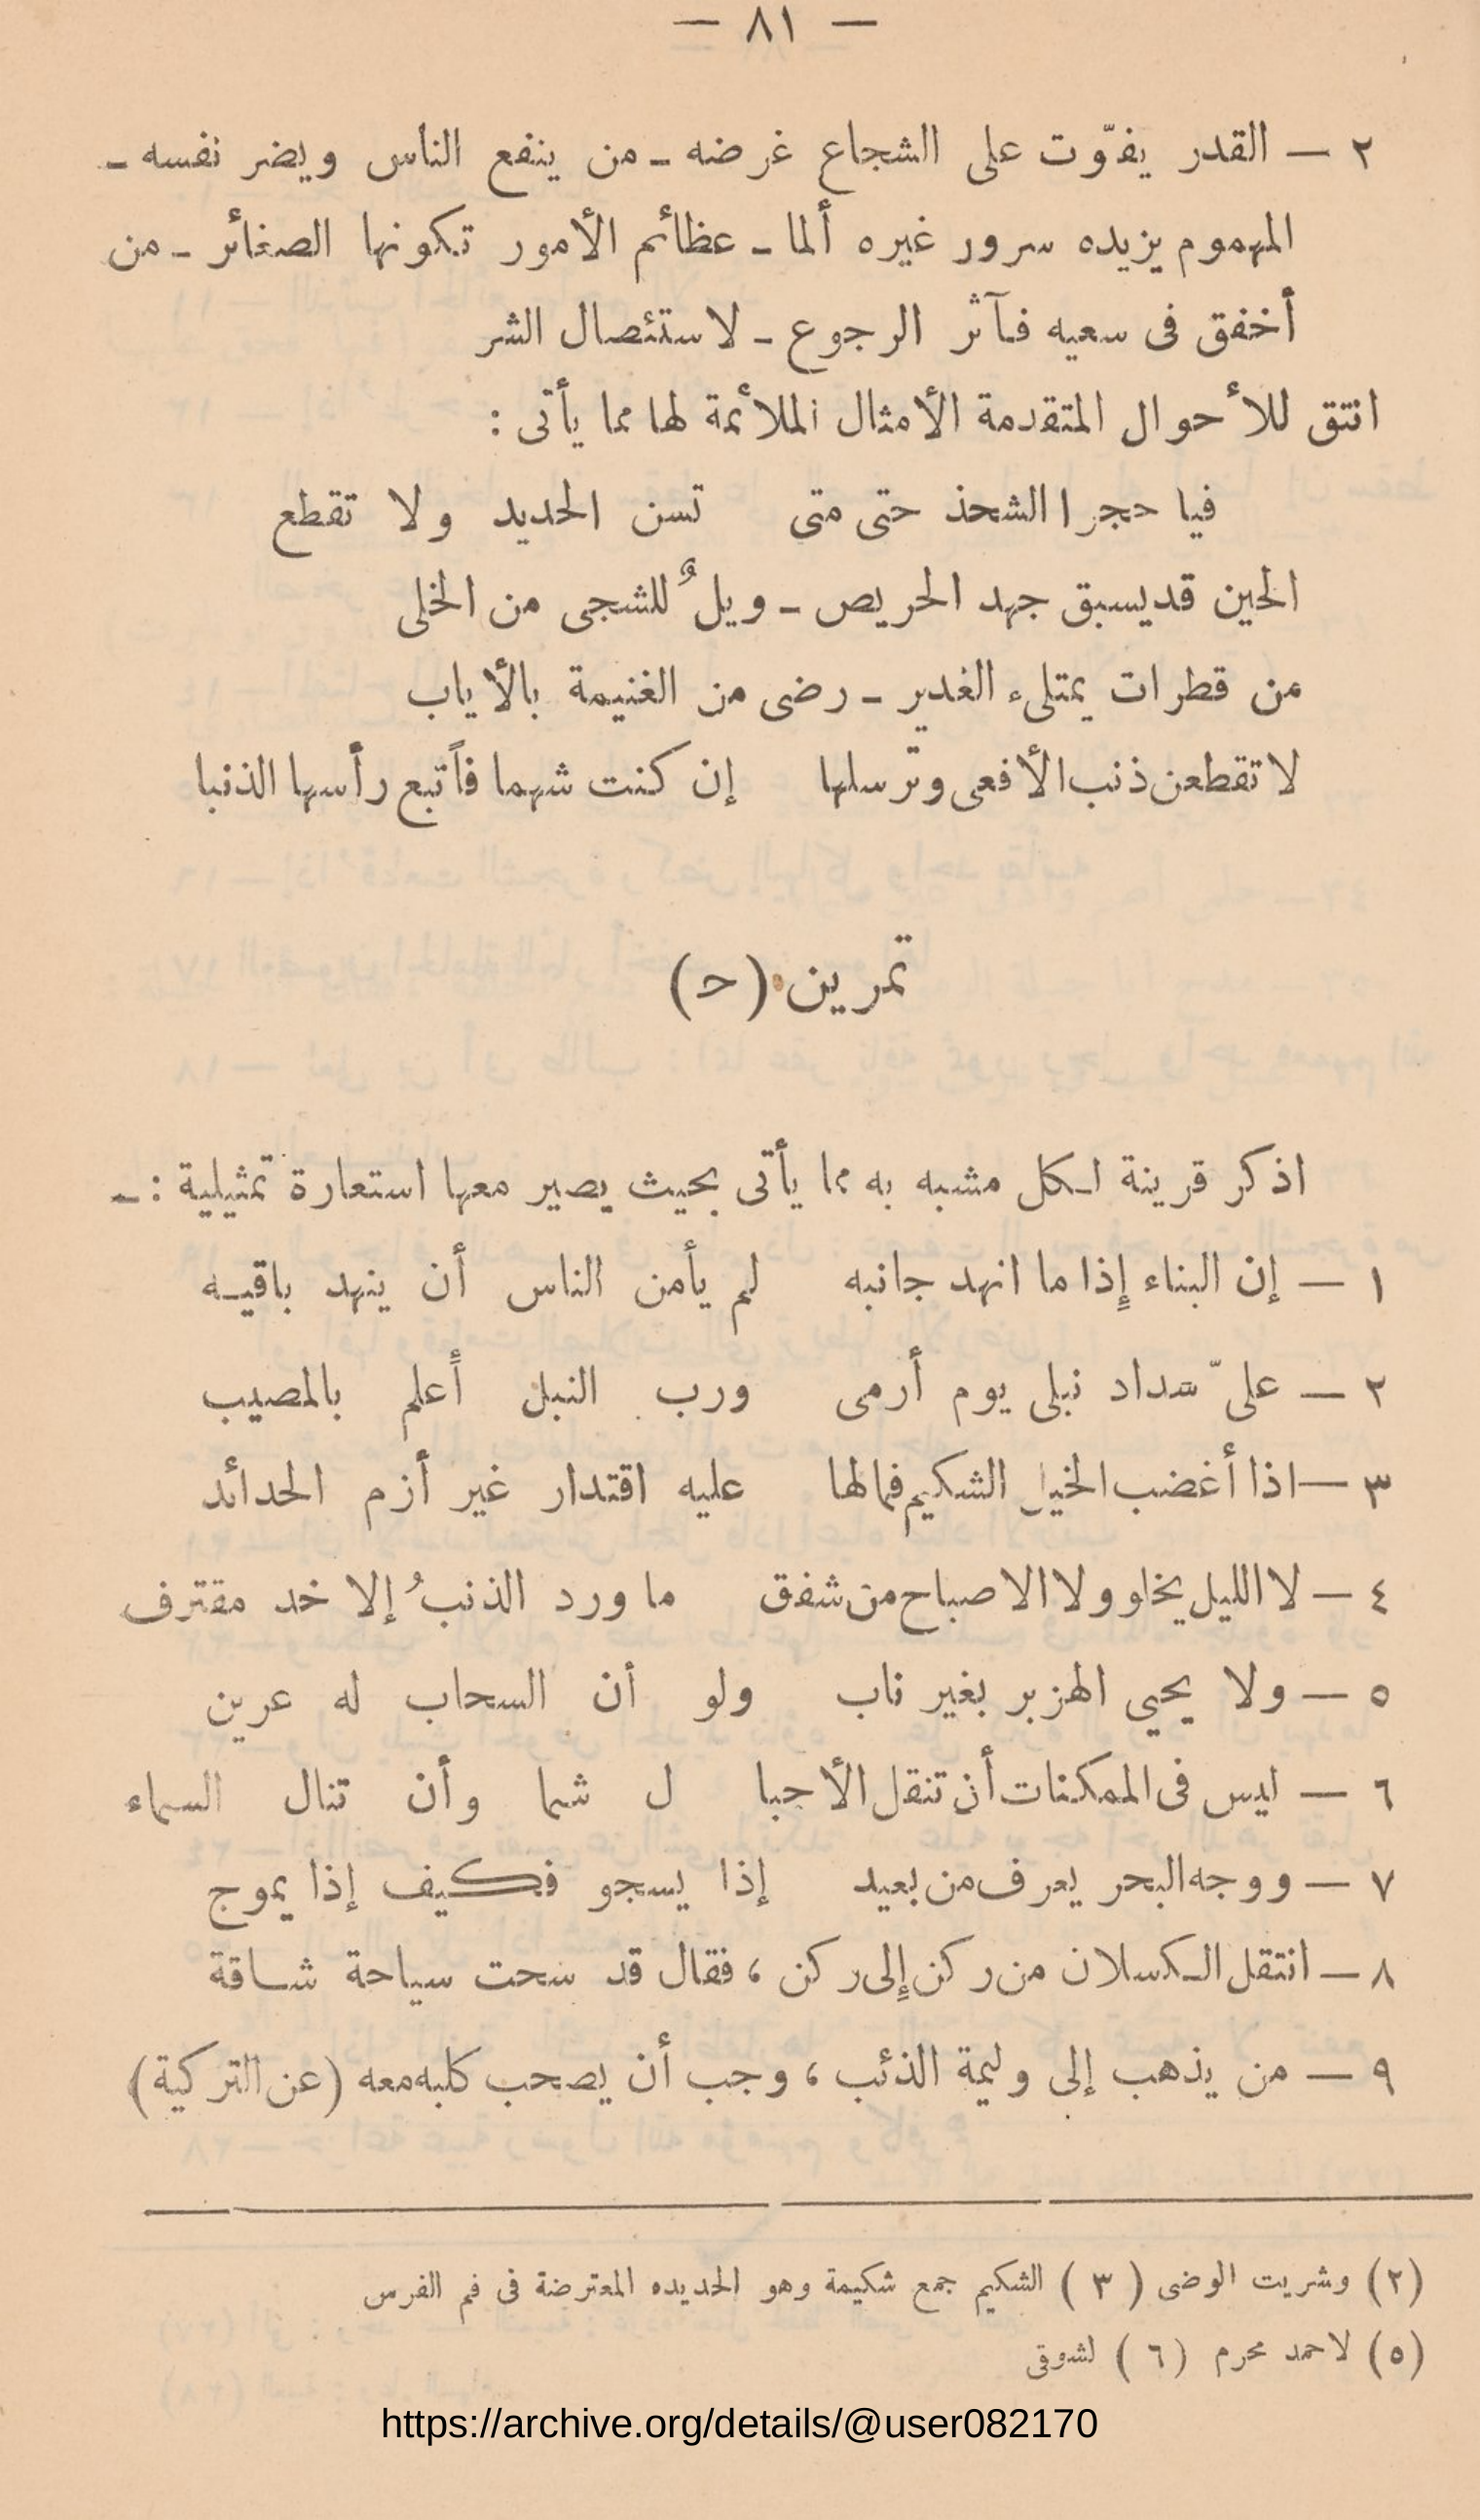 — ٨١ —
٢ — القدر يفوّت على الشجاع غرضه ــ من ينفع الناس ويضر نفسه ــ
المهموم يزيده سرور غيره ألما ــ عظائم الأمور تكونها الصغائر ــ من
أخفق فى سعيه فآثر الرجوع ــ لاستئصال الشر
انتق للأحوال المتقدمة الأمثال الملائمة لها مما يأتى :
فيا حجر الشحذ حتى متى تسن الحديد ولا تقطع
الحين قد يسبق جهد الحريص ــ ويلٌ للشجى من الخلى
من قطرات يمتلىء الغدير ــ رضى من الغنيمة بالأياب
لا تقطعن ذنب الأفعى وترسلها إن كنت شهما فأتبع رأسها الذنبا
تمرين (حـ)
اذكر قرينة لكل مشبه به مما يأتى بحيث يصير معها استعارة تمثيلية : ــ
١ — إن البناء إِذا ما انهد جانبه لم يأمن الناس أن ينهد باقيه
٢ — علىّ سداد نبلى يوم أرمى ورب النبل أعلم بالمصيب
٣ — اذا أغضب الخيل الشكيم فمالها عليه اقتدار غير أزم الحدائد
٤ — لا الليل يخلو ولا الاصباح من شفق ما ورد الذنبُ إلا خد مقترف
٥ — ولا يحيي الهزبر بغير ناب ولو أن السحاب له عرين
٦ — ليس فى الممكنات أن تنقل الأجبا ل شما وأن تنال السماء
٧ — ووجه البحر يعرف من بعيد إذا يسجو فكيف إذا يموج
٨ — انتقل الكسلان من ركن إِلى ركن ، فقال قد سحت سياحة شاقة
٩ — من يذهب إلى وليمة الذئب ، وجب أن يصحب كلبه معه (عن التركية)
(٢) وشريت الوضى (٣) الشكيم جمع شكيمة وهو الحديده المعترضة فى فم الفرس
(٥) لاحمد محرم (٦) لشوقى
https://archive.org/details/@user082170